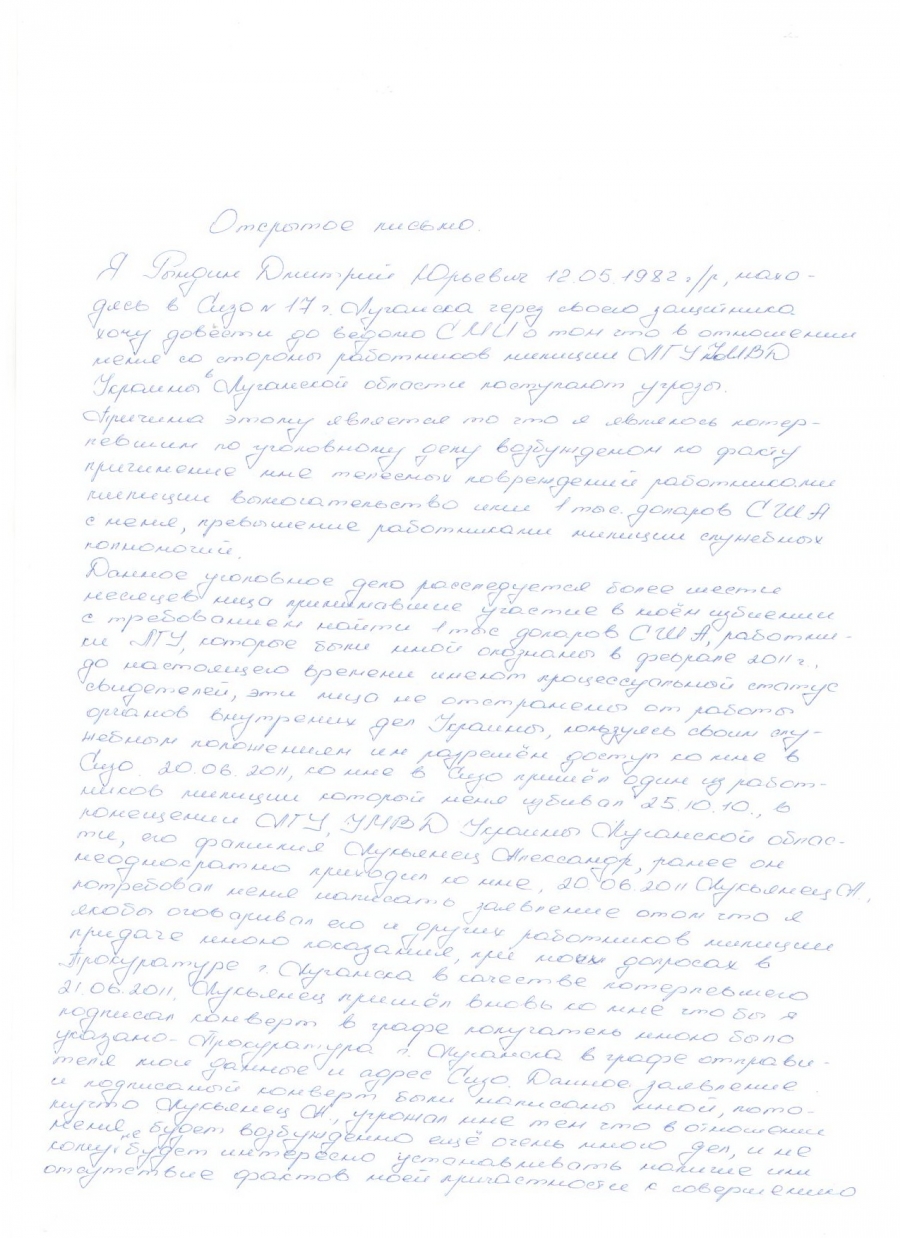 Открытое письмо.
Я Рындин Дмитрий Юрьевич 12.05.1982 г/р, нахо-
дясь в Сизо № 17 г. Луганска через своего защитника
хочу довести до ведома СМИ о том что в отношении
меня со стороны работников милиции ЛГУ УМВД
Украины в Луганской области поступают угрозы.
Причина этому является то что я являюсь потер-
певшим по уголовному делу возбужденом по факту
причинение мне телесных повреждений работниками
милиции вымогательство ими 1 тыс. доларов США
с меня, превышение работниками милиции служебных
полномочий.
Данное уголовное дело расследуется более шести
месяцев лица принимавшие участие в моём избиении
с требованием найти 1 тыс доларов США, работни-
ки ЛГУ, которые были мной опознаны в феврале 2011 г.,
до настоящего времени имеют процессуальный статус
свидетелей, эти лица не отстранены от работы
органов внутрених дел Украины, пользуясь своим слу-
жебным положением им разрешён доступ ко мне в
Сизо. 20.06.2011, ко мне в Сизо пришёл один из работ-
ников милиции который меня избивал 25.10.10., в
помещении ЛГУ, УМВД Украины Луганской облас-
ти, его фамилия Лукьянец Александр, ранее он
неоднократно приходил ко мне, 20.06.2011 Лукьянец А.,
потребовал меня написать заявление о том что я
якобы оговаривал его и других работников милиции
придаче мною показания, при моих допросах в
Прокуратуре г. Луганска в качестве потерпевшего
21.06.2011, Лукьянец пришёл вновь ко мне что бы я
подписал конверт в графе получатель мною было
указано - Прокуратура г. Луганска в графе отправи-
теля мои данные и адрес Сизо. Данное заявление
и подписаный конверт были написаны мной, пото-
мучто Лукьянец А., угрожал мне тем что в отношении
меня будет возбужденно ещё очень много дел, и не
кому не будет интересно устанавливать наличие или
отсутствие фактов моей причастности к совершению